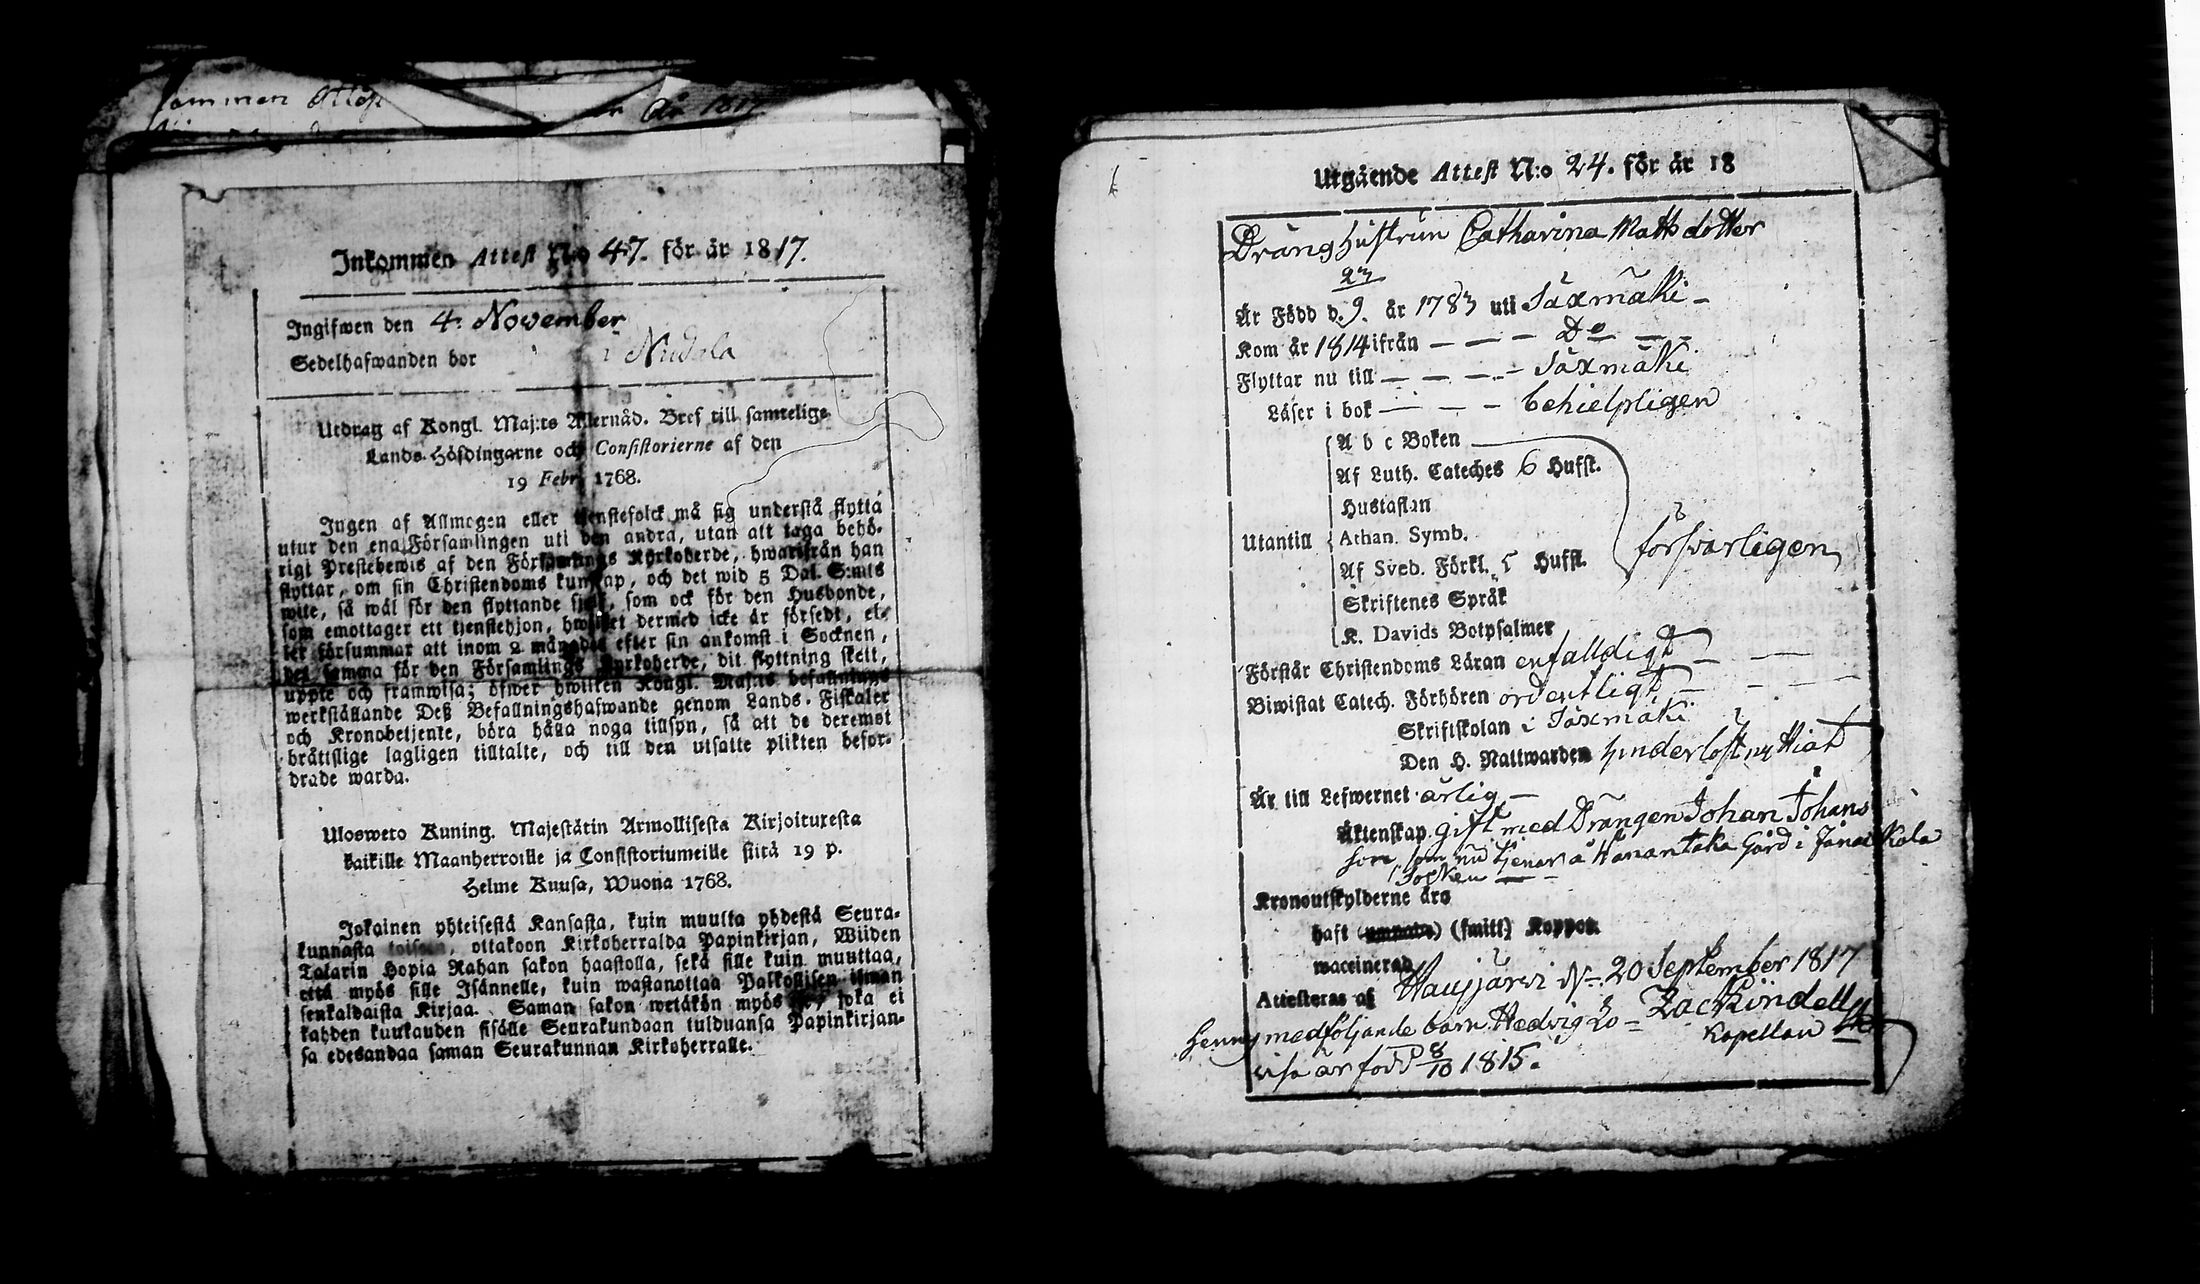 ommen Attest
År 1817
Inkommen Attest N:o 47. för år 1817.
Ingifwen den 4. November
Sedelhafwanden bor i Nudala
Utdrag af Kongl. Maj:ts Allernåd. Bref till samtelige
Lands-Höfdingarne och Consistorierne af den
19 Febr. 1768.
Ingen af Allmogen eller tjenstefolck må sig understå flytta
utur den ena Församlingen uti den andra, utan att taga behö-
rigt Prestebewis af den Församlings Kyrkoherde, hwarifrån han
flyttar, om sin Christendoms kunskap, och det wid 5 Dal. S:mts
wite, så wäl för den flyttande sjelf, som ock för den Husbonde,
som emottager ett tjenstehjon, hwilket dermed icke är försedt, el-
ler försummar att inom 2 månader efter sin ankomst i Socknen,
det samma för den Församlings Kyrkoherde, dit flyttning skett,
uppte och framwisa; öfwer hwilken Kongl. Maj:ts befallnings
werkställande Deß Befallningshafwande genom Lands-Fiskaler
och Kronobetjente, böra hålla noga tillsyn, så att de deremot
bråttslige lagligen tilltalte, och till den utsatte plikten befor-
drade warda.
Ulosweto Kuning. Majestätin Armollisesta Kirjoituxesta
kaikille Maanherroille ja Consistoriumeille siitä 19 p.
Helme Kuusa, Wuona 1768.
Jokainen yhteisestä Kansasta, kuin muulta yhdestä Seura-
kunnasta toiseen, ottakoon Kirkoherralda Papinkirjan, Wiiden
Talarin Hopia Rahan sakon haastolla, sekä sille kuin muuttaa,
että myös sille Isännelle, kuin wastanottaa Palkollisen ilman
senkaldaista Kirjaa. Saman sakon wetäkön myös joka ei
kahden kuukauden sisälle Seurakundaan tulduansa Papinkirjan-
sa edesandaa saman Seurakunnan Kirkoherralle.
Utgående Attest N:o 24. för år 18
Dränghustrun Catharina Mattsdotter
23
Är Född d. 9. år 1783 uti Säxmäki -
Kom år 1814 ifrån - - - Do - -
Flyttar nu till - - - - - Säxmäki
Läser i bok - - - - behielpligen
A b c Boken
Af Luth. Cateches 6 Hufst.
Hustaflan
Utantill Athan. Symb. försvarligen
Af Sveb. Förkl. 5 Hufst.
Skriftenes Språk
K. Davids Botpsalmer
Förstår Christendoms Läran enfalldigt - - -
Biwistat Catech. Förhören ordentligt - - -
Skriftskolan i Säxmäki
Den H. Nattwarden hinderlöst nyttiat
Är till Lefwernet ärlig -
Äktenskap gift med Drängen Johan Johans
son, som nu tjenar å Hanantaka Gård i Janakkala
Socken -
Kronoutskylderne äro
haft (smitt) Koppor
waccinerad
Attesteras af Hausjärvi d. 20 September 1817
Zac Kindell
Hennes medföljande barn Hedvig Lo-
Kapellan
visa är född 8/10 1815.